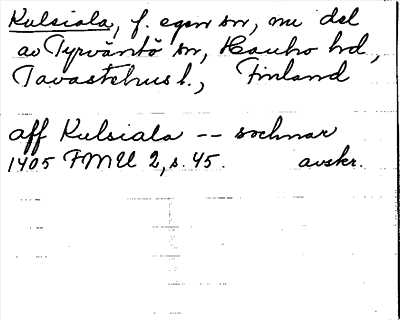 Kulsiala, f. egen sn, nu del
av Tyrväntö sn, Hauho hd,
Tavastehus l., Finland
aff Kulsiala -- sochnar
1405 FMU 2, s. 45. avskr.